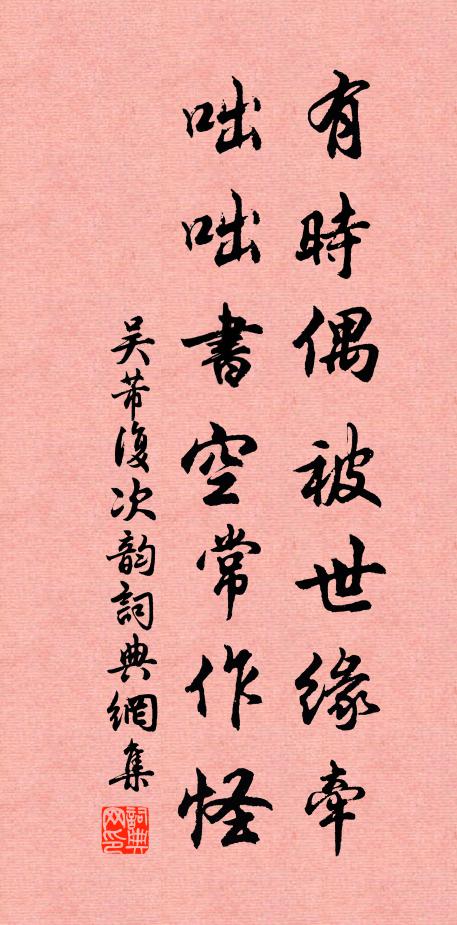 有時偶被世緣牽
咄咄書空常作怪
吳芾復次韵詞典網集
詞典网印